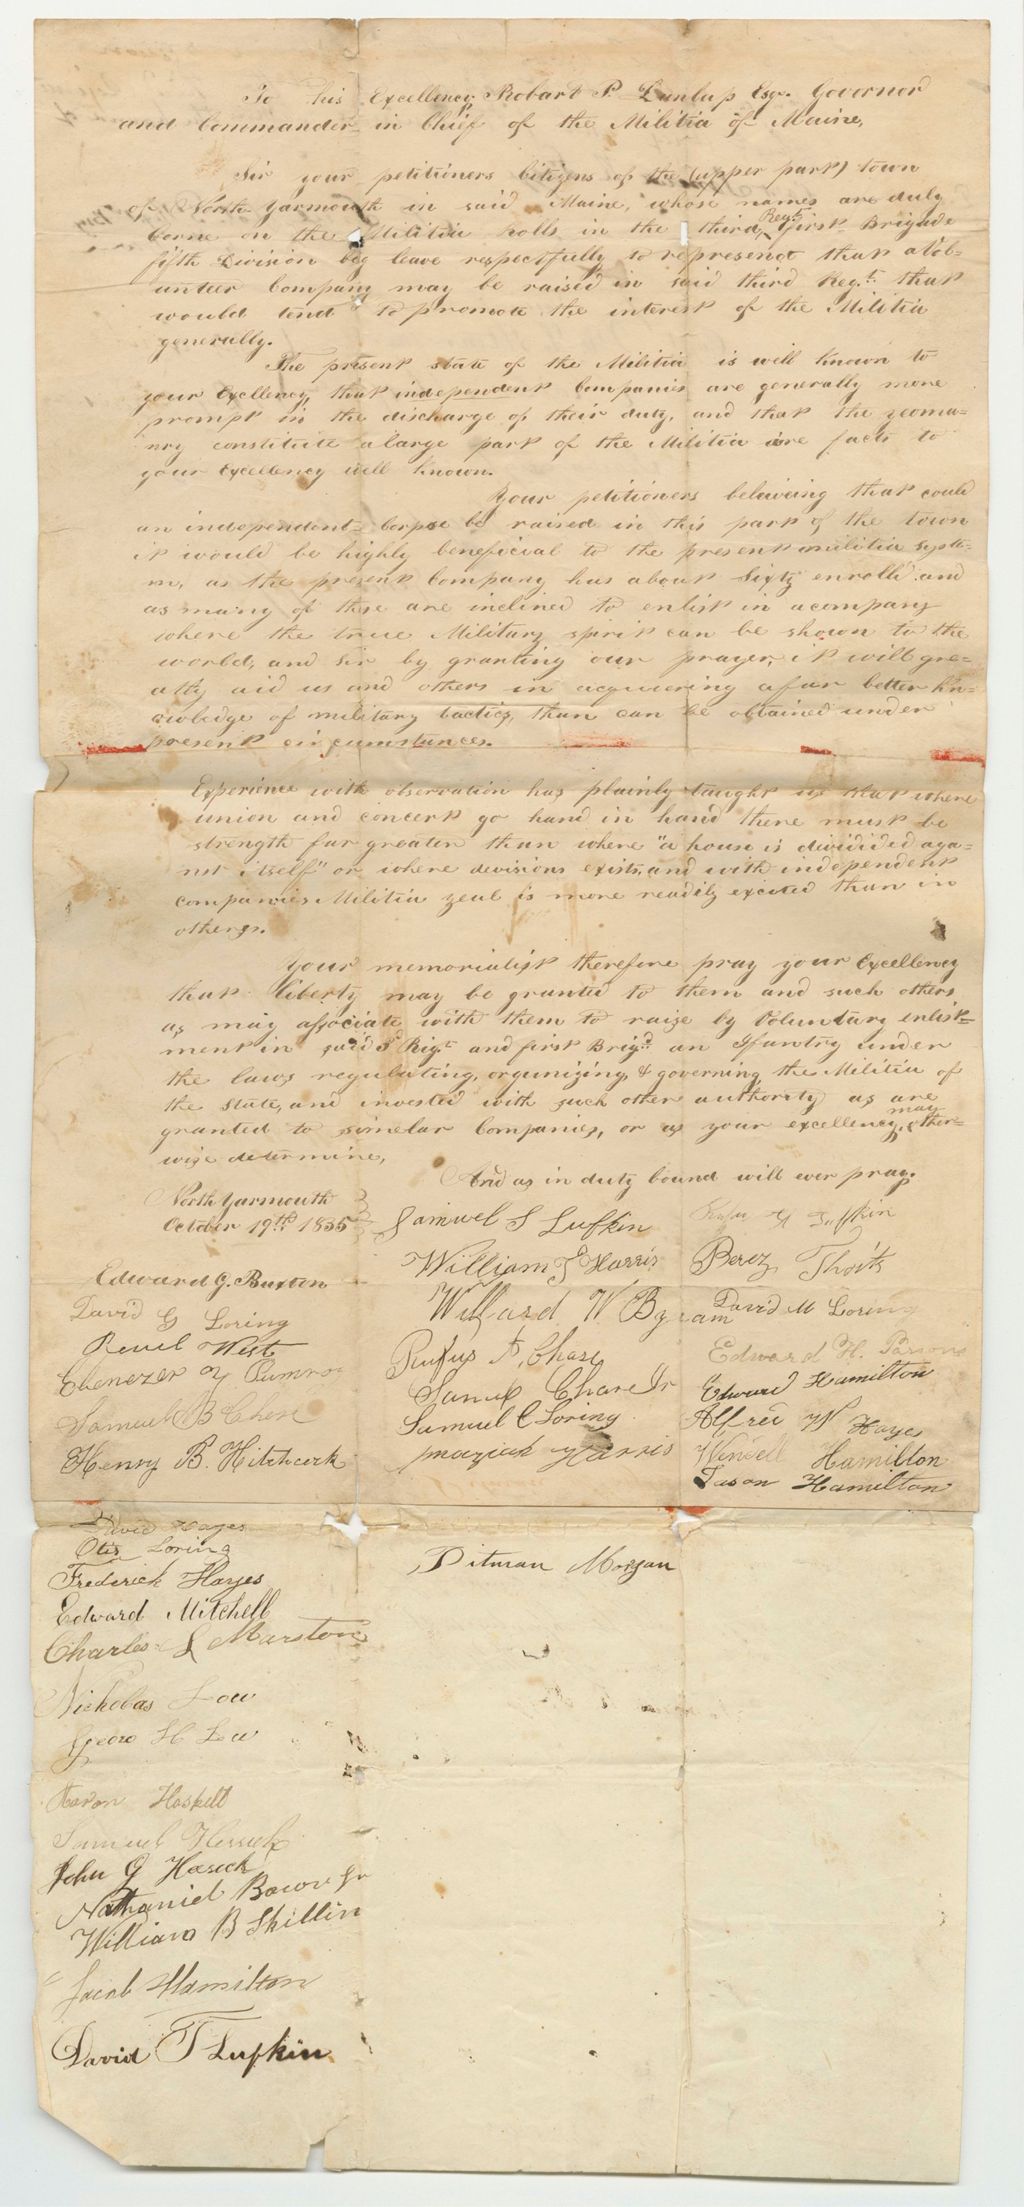 To his Excellency Robart P. Dunlap Esqr. Governor
and Commander in Chief of the Militia of Maine,
Sir your petitioners Citizens of the (upper part) town
of North Yarmouth in said Maine, whose names are duly
borne on the Militia Rolls in the third Regt. first Brigade
fifth Division beg leave respectfully to represenct that a Vol-
unteer Company may be raised in said third Regt. that
would tend to promote the interest of the Militia
generally.
The present state of the Militia is well known to
your Excellency, that independent Companies are generally more
prompt in the discharge of their duty, and that the yeoma-
nry constitute a large part of the Militia are facts to
your Excellency well known.
Your petitioners beleiveing that could
an independent Corpse be raised in this part of the town
it would be highly beneficial to the present militia syste-
m, as the present Company has about Sixty enrolld and
as many of these are inclined to enlist in a company
where the true Military spirit can be shown to the
world, and Sir by granting our prayer, it will gre-
atly aid us and others in acquiering a far better kn-
owledge of military tactics, than can be obtained under
present circumstances.
Experience with observation has plainly taught us that where
union and concert go hand in hand there must be
strength far greater than where "a house is divided aga-
nst itself" or where devisions exists, and with independent
companies Militia zeal is more readily excited than in
others.
Your memorialist therefore pray your Excellency
that liberty may be granted to them and such others
as may associate with them to raise by Voluntary enlist-
ment in said 3d Rigt. and first Brigd. an Ifantry under
the laws regulating, organizing, & governing the Militia of
the State, and invested with such other authority as are
granted to simelar Companies, or as your excellency may other-
wise determine,
And as in duty bound will ever pray.
North Yarmouth
October 19th 1835
Samuel S Lufkin
William S Harris
Willard W Byram
Rufus A. Chase
Samuel Chase Jr
Samuel C Loring
Harris
Lufkin
Perez Thoits
David M Loring
Edward H. Parsons
Edward Hamilton
Alfred W Hayes
Windell Hamilton
Jason Hamilton
Edward G. Buxton
David G Loring
Reuel West
Ebenezer Y Pumroy
Samuel B
Henry B. Hitchcock
David Hayes
Otis Loring
Frederick Hayes
Edward Mitchell
Charles L Marston
Nicholas Low
H Low
Aaron Haskell
Samuel
John G
Nathaniel
William B Skillin
Jacob Hamilton
David T Lufkin
Pitman Morgan